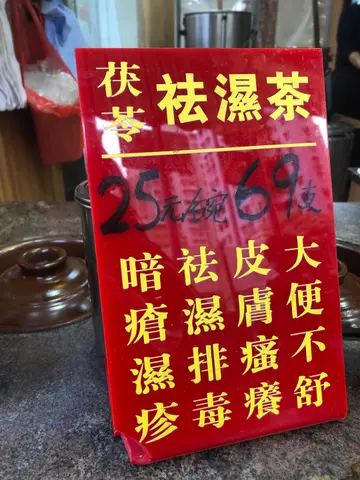 茯苓
祛濕茶
25元/碗 69支
大便不舒
皮膚瘙癢
祛濕排毒
暗瘡濕疹